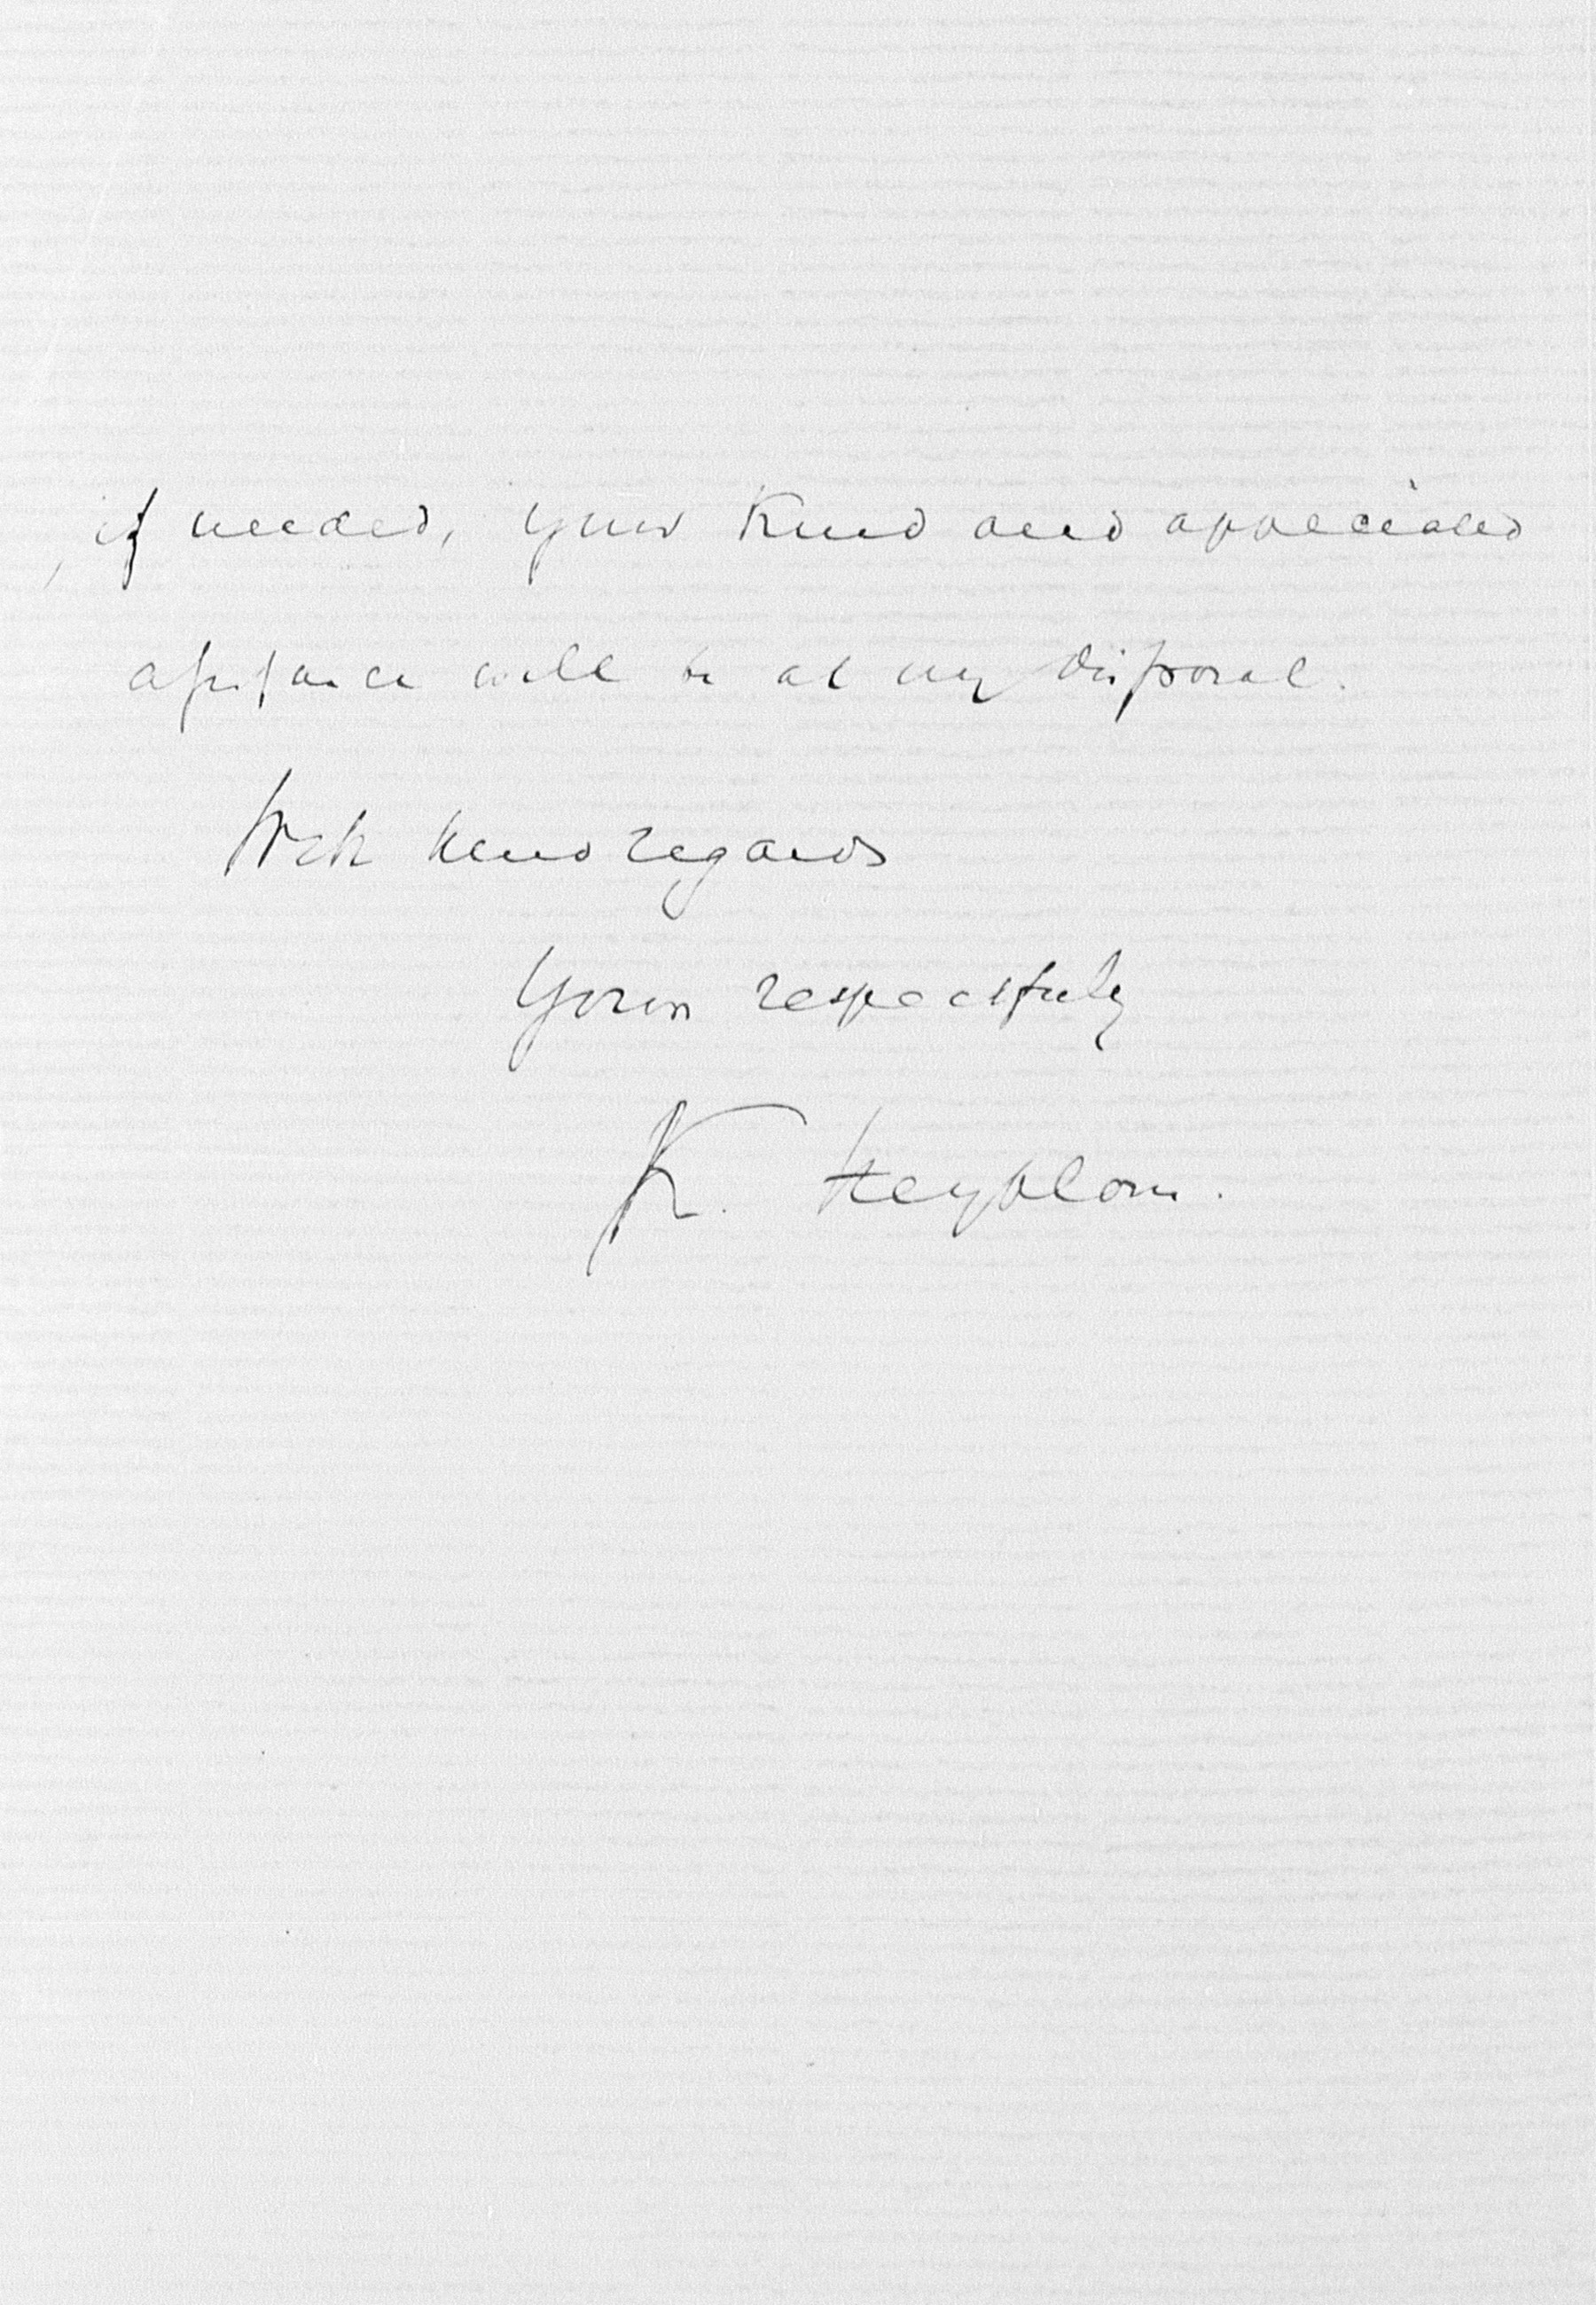 , if needed, your kind and appreciated
assistance will be at my disposal.
With kind regards
Yours respectfuly
K. Heyblom.